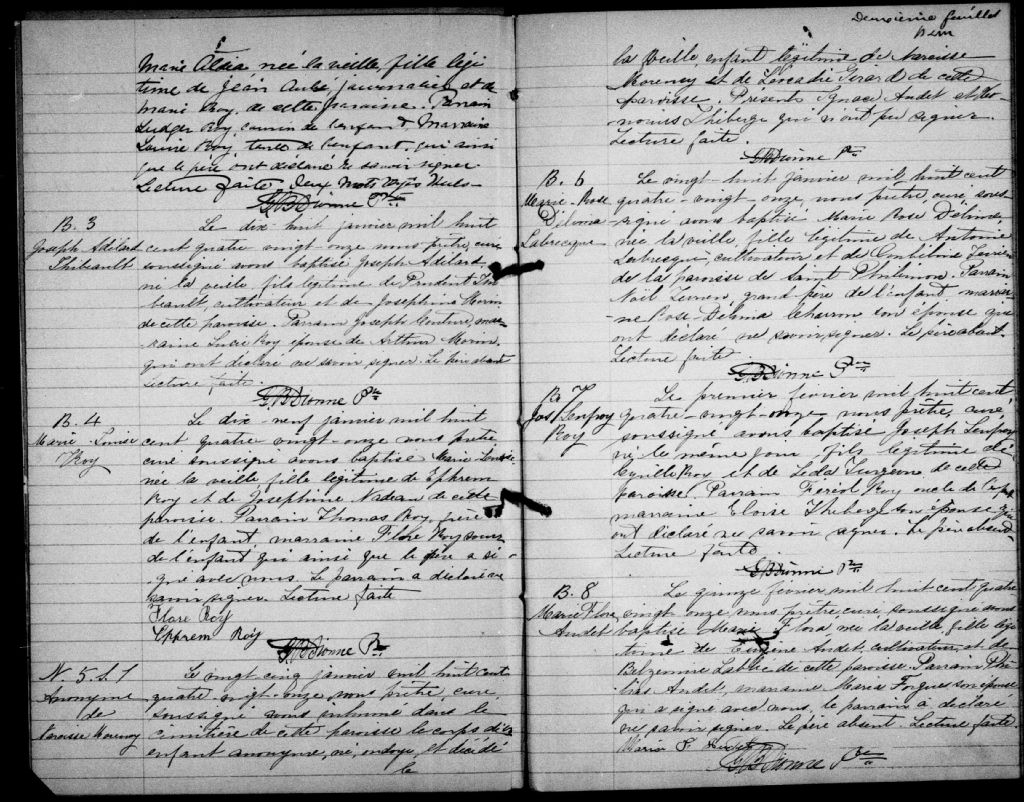 Marie Alda, née la veille, fille légi
time de Jean Aubé, journalier et de
Marie Roy, de cette paroisse. Parrain
Ludger Roy, cousin de l'enfant, Marraine
Louise Roy, tante de l'enfant, qui ainsi
que le père ont déclaré ne savoir signer.
Lecture faite. Deux mots rayés nuls
G.B. Dionne Ptre
B. 3
Joseph Adélard
Thibault
Le dix huit janvier mil huit
cent quatre vingt onze nous prêtre, curé
soussigné avons baptisé Joseph Adélard
né la veille, fils légitime de Prudent Thi
beault, cultivateur et de Josephine Morin
de cette paroisse. Parrain Joseph Couture, mar
raine Lucie Roy épouse de Arthur Morin,
qui ont déclaré ne savoir signer. Le père absent
Lecture faite.
G.B. Dionne Ptre
B. 4
Marie Louise
Roy
Le dix-neuf janvier mil huit
cent quatre vingt onze nous prêtre
curé soussigné avons baptisé Marie Louise
née la veille fille légitime de Ephrem
Roy et de Josephine Nadeau de cette
paroisse. Parrain Thomas Roy, frère
de l'enfant, marraine Flore Roy soeur
de l'enfant qui ainsi que le père a si-
gné avec nous. Le parrain a déclaré ne
savoir signer. Lecture faite
Flore Roy
Epprem Roy
G.B. Dionne Ptre
N. 5. S. 1
Anonyme
de
Narcisse Morency
Le vingt cinq janvier mil huit cent
quatre vingt-onze, nous prêtre curé
soussigné avons inhumé dans le
cimetière de cette paroisse le corps d'un
enfant anonyme, né, ondoyé, et décédé
Deuxième feuillet
la veille enfant légitime de Narcisse
Morency et de Léocadie Girard de cette
paroisse. Présents Ignace Audet et Ho-
noré Théberge qui n'ont pu signer.
Lecture faite.
G.B. Dionne Ptre
B. 6
Marie-Rose
Délima
Labrecque
Le vingt-huit janvier mil huit cent
quatre-vingt-onze, nous prêtre, curé sous-
signé avons baptisé Marie Rose Délima,
née la veille, fille légitime de Antoine
Labrecque, cultivateur et de
de la paroisse de Saint Philémon. Parrain
Noël grand-père de l'enfant marrai-
ne Rose-Délima Charron son épouse qui
ont déclaré ne savoir signer. Le père absent.
Lecture faite.
G.B. Dionne Ptre
B. 7
Jos
Roy
Le premier février mil huit cent
quatre-vingt-onze nous prêtre, curé
soussigné avons baptisé Joseph
né le même jour fils légitime de
Cyrille Roy et de Léda Turgeon de cette
paroisse. Parrain Roy oncle de l'enfant
marraine Eloïse Théberge son épouse qui
ont déclaré ne savoir signer. Le père absent
Lecture faite.
G.B. Dionne Ptre
B. 8
Marie Flore
Audet
Le quinze février mil huit cent quatre
vingt onze nous prêtre curé soussigné avons
baptisé Marie Flora, née la veille, fille légi
time de Eugène Audet, cultivateur, et de
de cette paroisse. Parrain
Audet, marraine Marie Forgues son épouse
qui a signé avec nous, le parrain a déclaré
ne savoir signer. Le père absent. Lecture faite
Maria F. Audet
G.B. Dionne Ptre